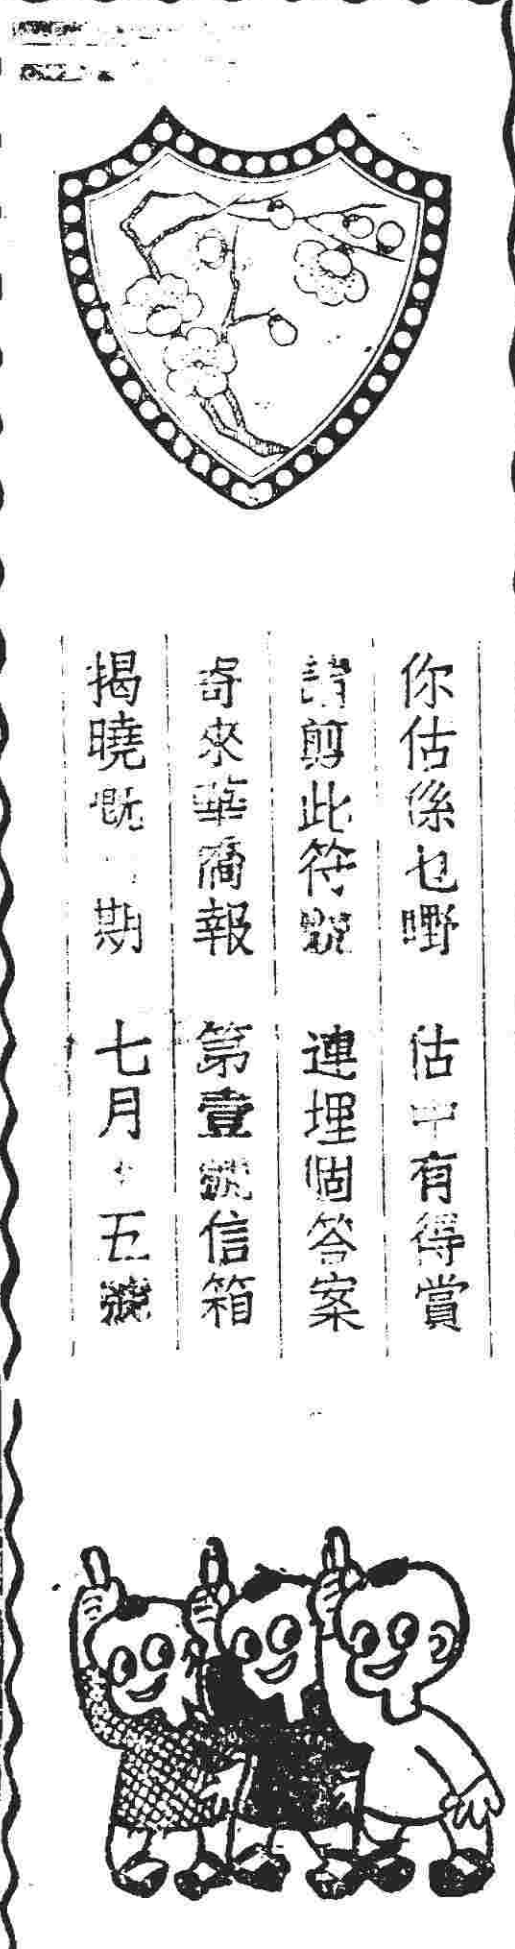 你估係乜嘢 估中有得賞
請剪此符號 連埋個答案
寄來華僑報 第壹號信箱
揭曉嘅 期 七月十五號